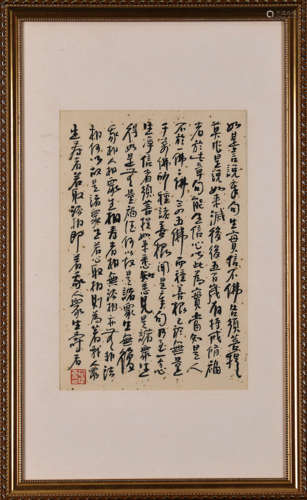 如是言說章句生實信不佛告須菩提
莫作是說如來滅後後五百歲有持戒修福
者於此章句能生信心以此為實當知是人
不於一佛二佛三四五佛而種善根已於無量
千萬佛所種諸善根聞是章句乃至一念
生淨信者須菩提如來悉知悉見是諸眾生
得如是無量福德何以故是諸眾生無復
我相人相眾生相壽者相無法相亦無非法
相何以故是諸眾生若心取相則為著我人眾
生壽者若取法相即著我人眾生壽者